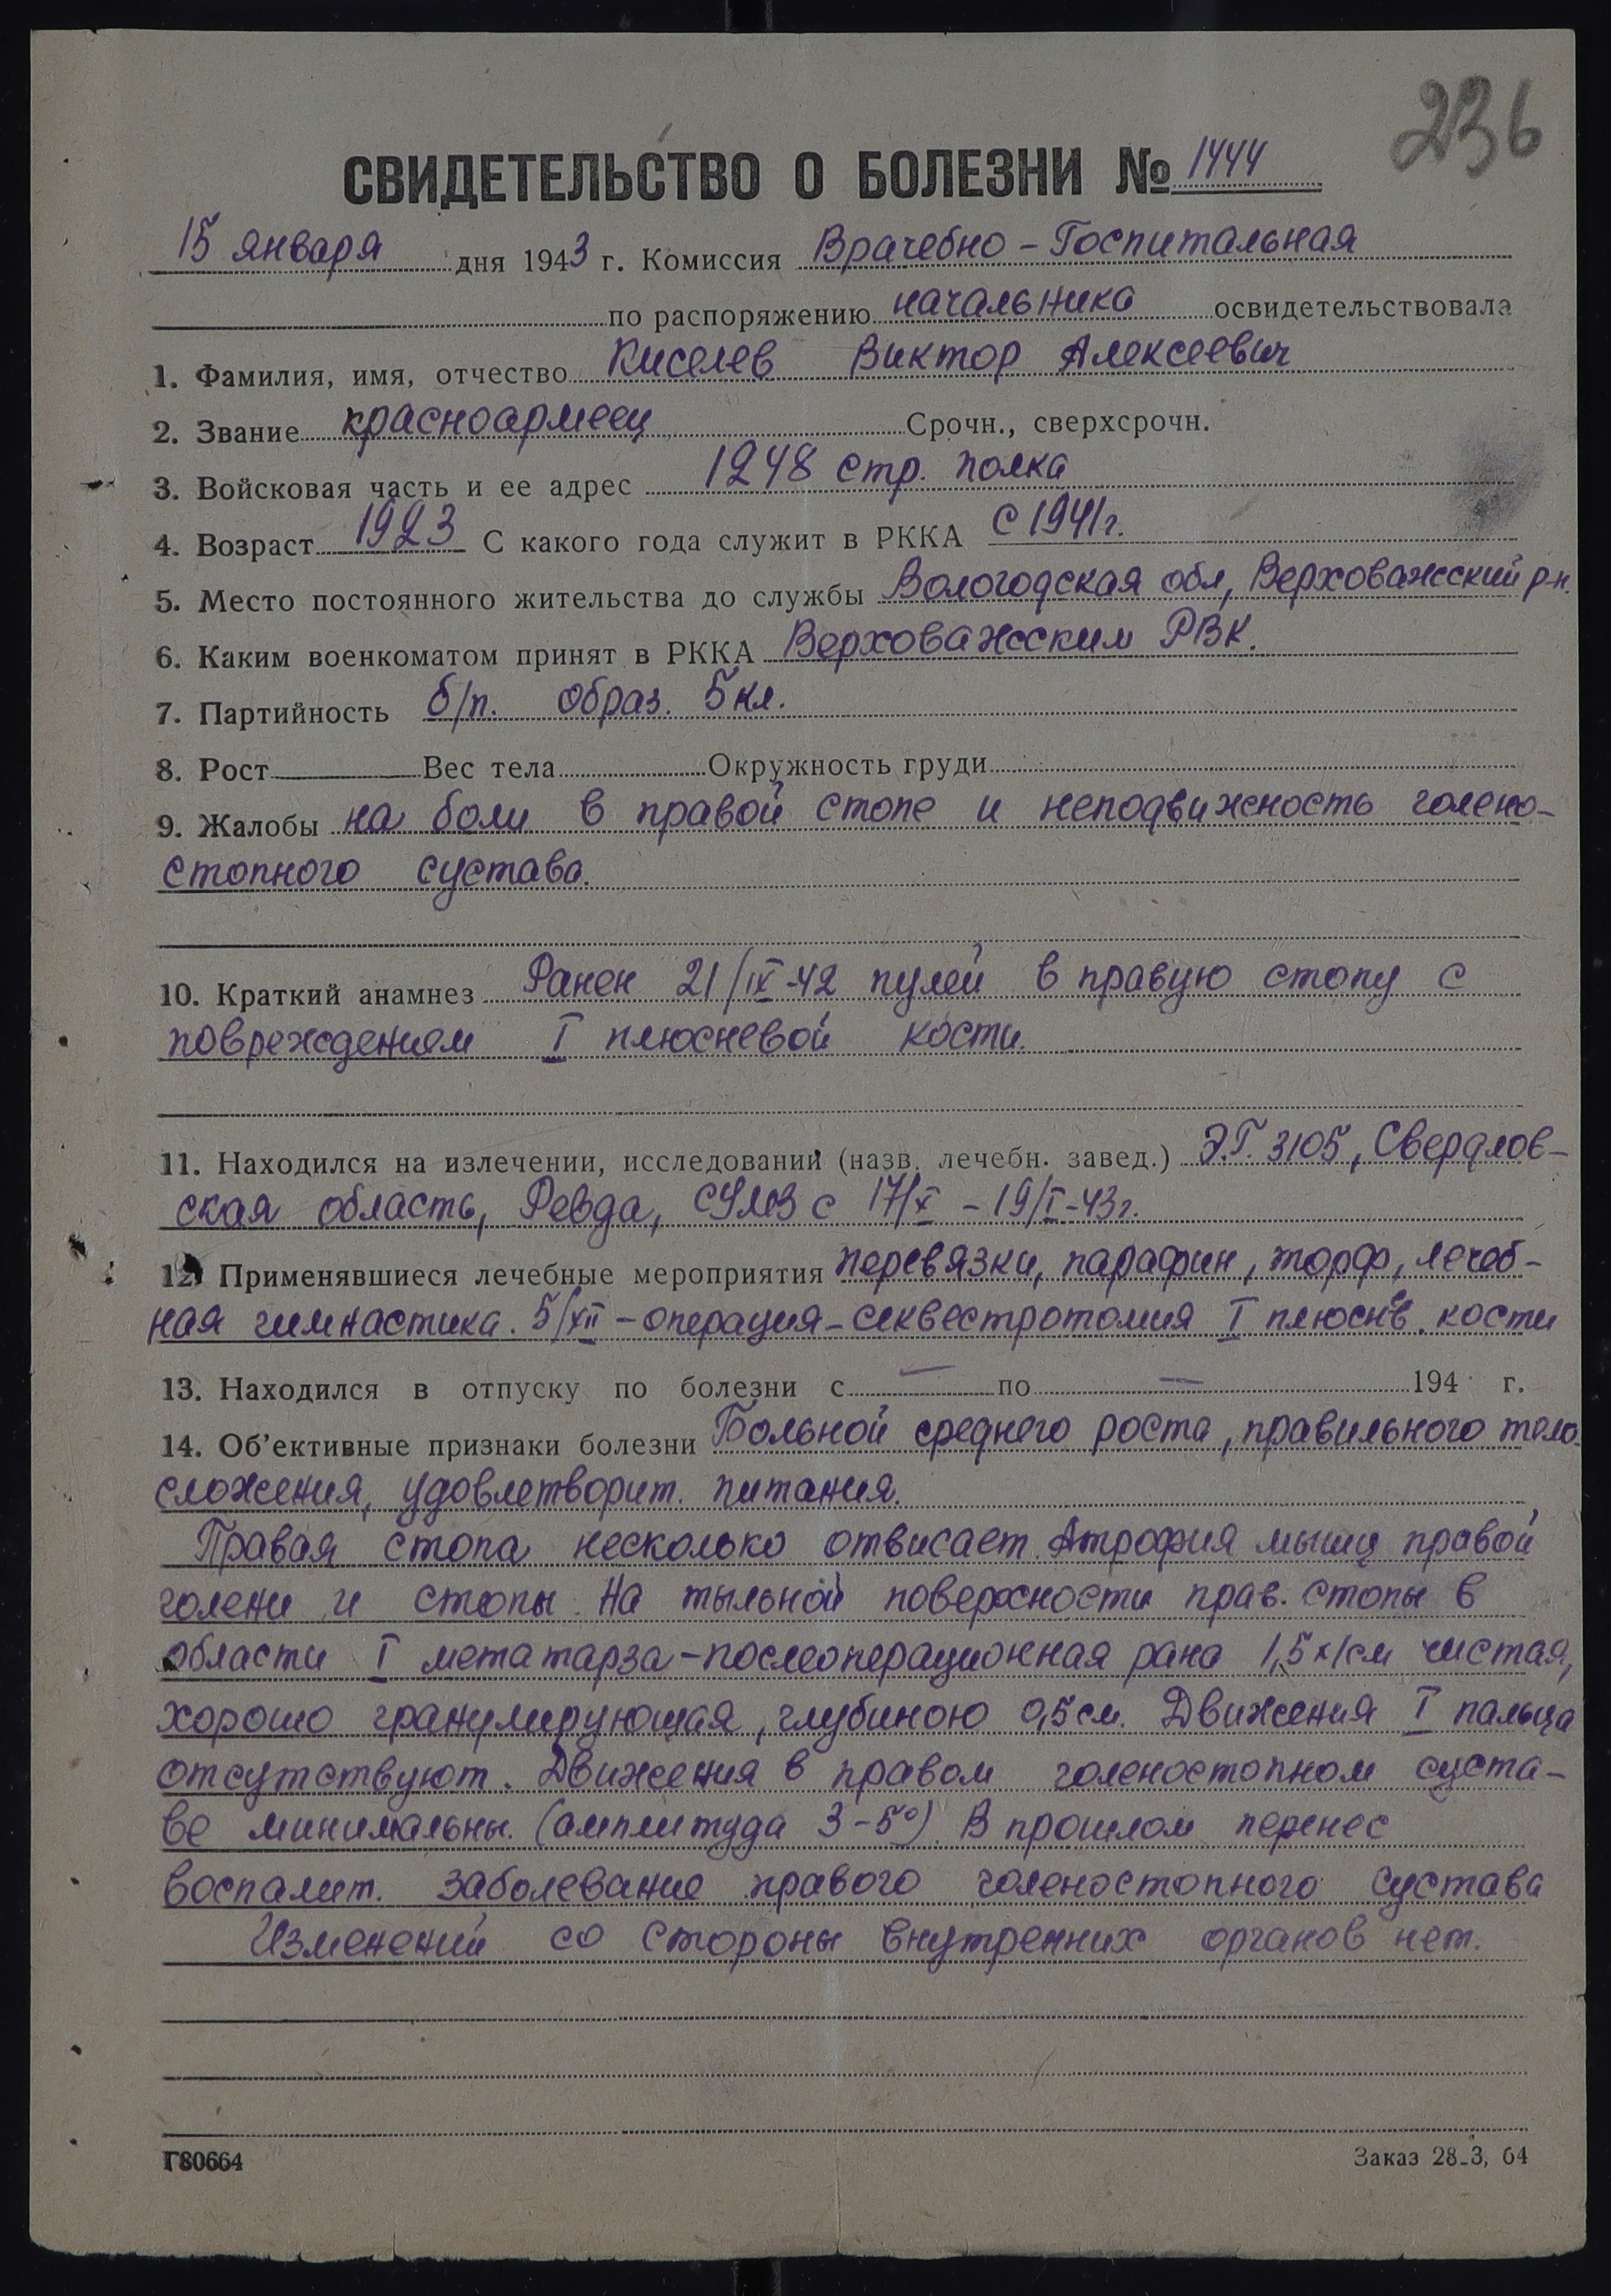 236
СВИДЕТЕЛЬСТВО О БОЛЕЗНИ № 1444
15 января дня 1943 г. Комиссия Врачебно-Госпитальная
по распоряжению начальника освидетельствовала
1. Фамилия, имя, отчество Киселев Виктор Алексеевич
2. Звание красноармеец Срочн., сверхсрочн.
3. Войсковая часть и ее адрес 1248 стр. полка
4. Возраст 1923 С какого года служит в РККА с 1941 г.
5. Место постоянного жительства до службы Вологодская обл, Верховажсский р-н.
6. Каким военкоматом принят в РККА Верховажсским РВК.
7. Партийность б/п. образ. 5 кл.
8. Рост Вес тела Окружность груди
9. Жалобы на боли в правой стопе и неподвижность голено-
стопного сустава.
10. Краткий анамнез Ранен 21/IX-42 пулей в правую стопу с
повреждением I плюсневой кости.
11. Находился на излечении, исследовании (назв. лечебн. завед.) Э.Г. 3105, Свердлов-
ская область, Ревда, СУМЗ с 17/X - 19/I-43г.
12. Применявшиеся лечебные мероприятия перевязки, парафин, торф, лечеб-
ная гимнастика. 5/XII - операция - секвестротомия I плюснев. кости
13. Находился в отпуску по болезни с — по — 194 г.
14. Об'ективные признаки болезни Больной среднего роста, правильного тело-
сложения, удовлетворит. питания.
Правая стопа несколько отвисает. Атрофия мышц правой
голени и стопы. На тыльной поверхности прав. стопы в
области I метатарза - послеоперационная рана 1,5х1см чистая,
хорошо гранулирующая, глубиною 0,5 см. Движения I пальца
отсутствуют. Движения в правом голеностопном суста-
ве минимальны. (амплитуда 3-5°). В прошлом перенес
воспалит. заболевание правого голеностопного сустава
Изменений со стороны внутренних органов нет.
Г80664 Заказ 28-3, 64